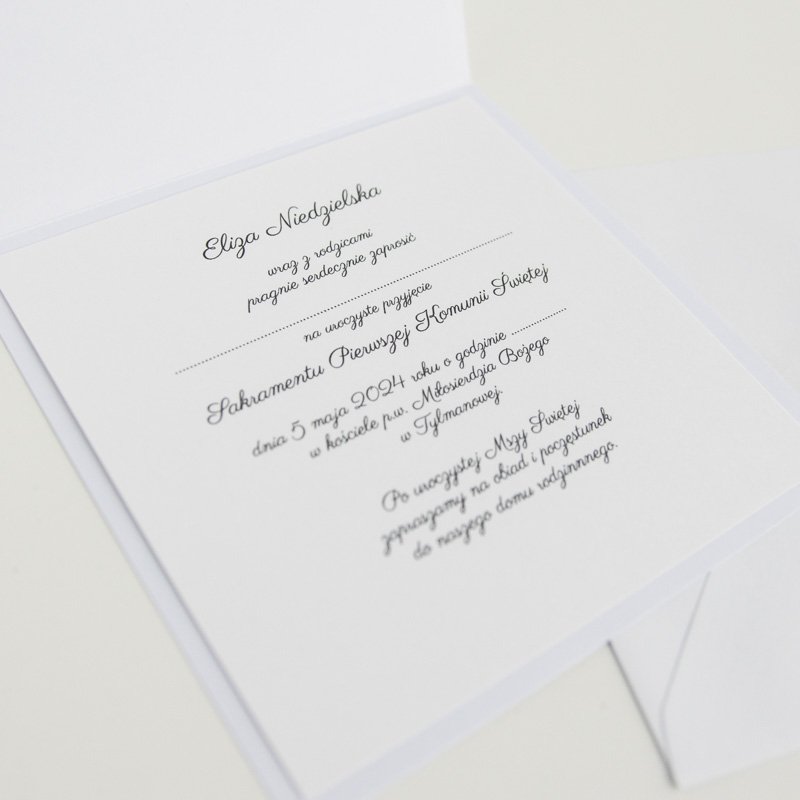 Eliza Niedzielska
wraz z rodzicami
pragnie serdecznie zaprosić
na uroczyste przyjęcie
Sakramentu Pierwszej Komunii Świętej
dnia 5 maja 2024 roku o godzinie ..............
w kościele p.w. Miłosierdzia Bożego
w Tylmanowej.
Po uroczystej Mszy Świętej
zapraszamy na obiad i poczęstunek
do naszego domu rodzinnnego.